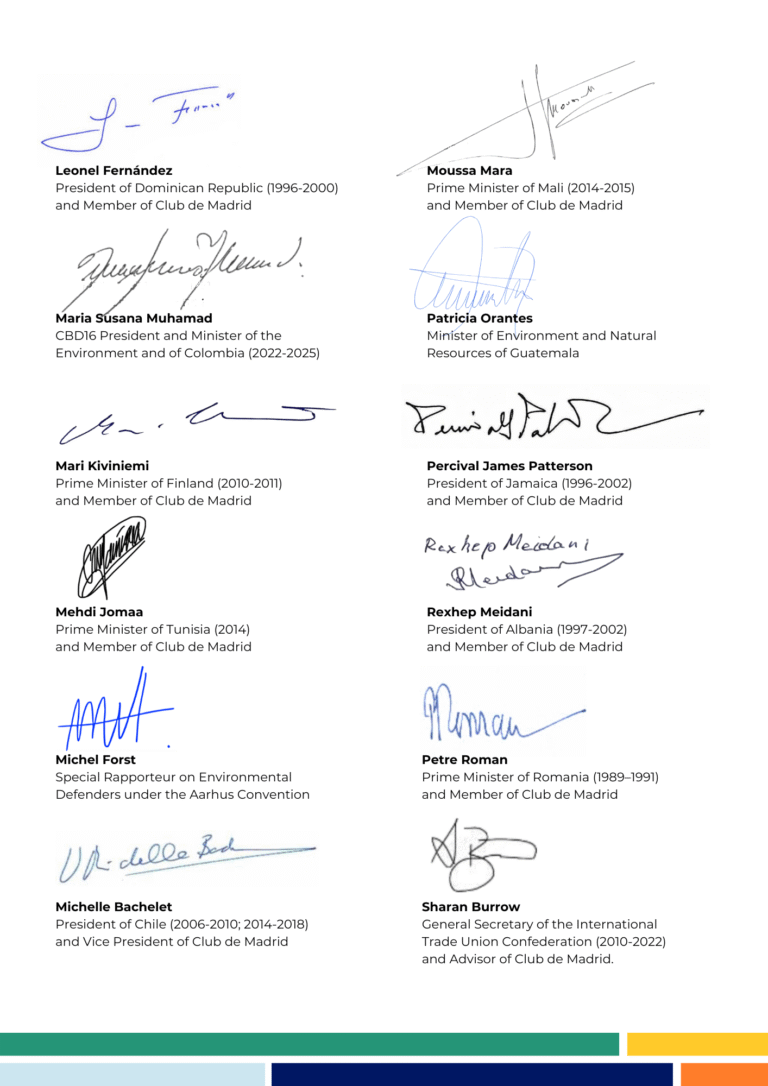 Leonel Fernández
President of Dominican Republic (1996-2000)
and Member of Club de Madrid
Moussa Mara
Prime Minister of Mali (2014-2015)
and Member of Club de Madrid
Maria Susana Muhamad
CBD16 President and Minister of the
Environment and of Colombia (2022-2025)
Patricia Orantes
Minister of Environment and Natural
Resources of Guatemala
Mari Kiviniemi
Prime Minister of Finland (2010-2011)
and Member of Club de Madrid
Percival James Patterson
President of Jamaica (1996-2002)
and Member of Club de Madrid
Mehdi Jomaa
Prime Minister of Tunisia (2014)
and Member of Club de Madrid
Rexhep Meidani
Rexhep Meidani
President of Albania (1997-2002)
and Member of Club de Madrid
Michel Forst
Special Rapporteur on Environmental
Defenders under the Aarhus Convention
Petre Roman
Prime Minister of Romania (1989–1991)
and Member of Club de Madrid
Michelle Bachelet
President of Chile (2006-2010; 2014-2018)
and Vice President of Club de Madrid
Sharan Burrow
General Secretary of the International
Trade Union Confederation (2010-2022)
and Advisor of Club de Madrid.